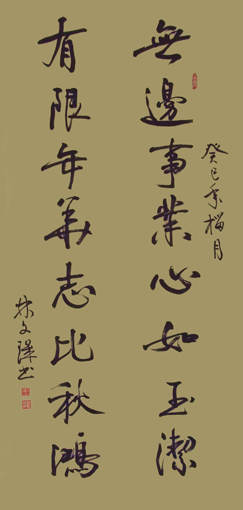 無邊事業心如玉潔
癸巳年榴月
有限年華志比秋鴻
林文瑋书